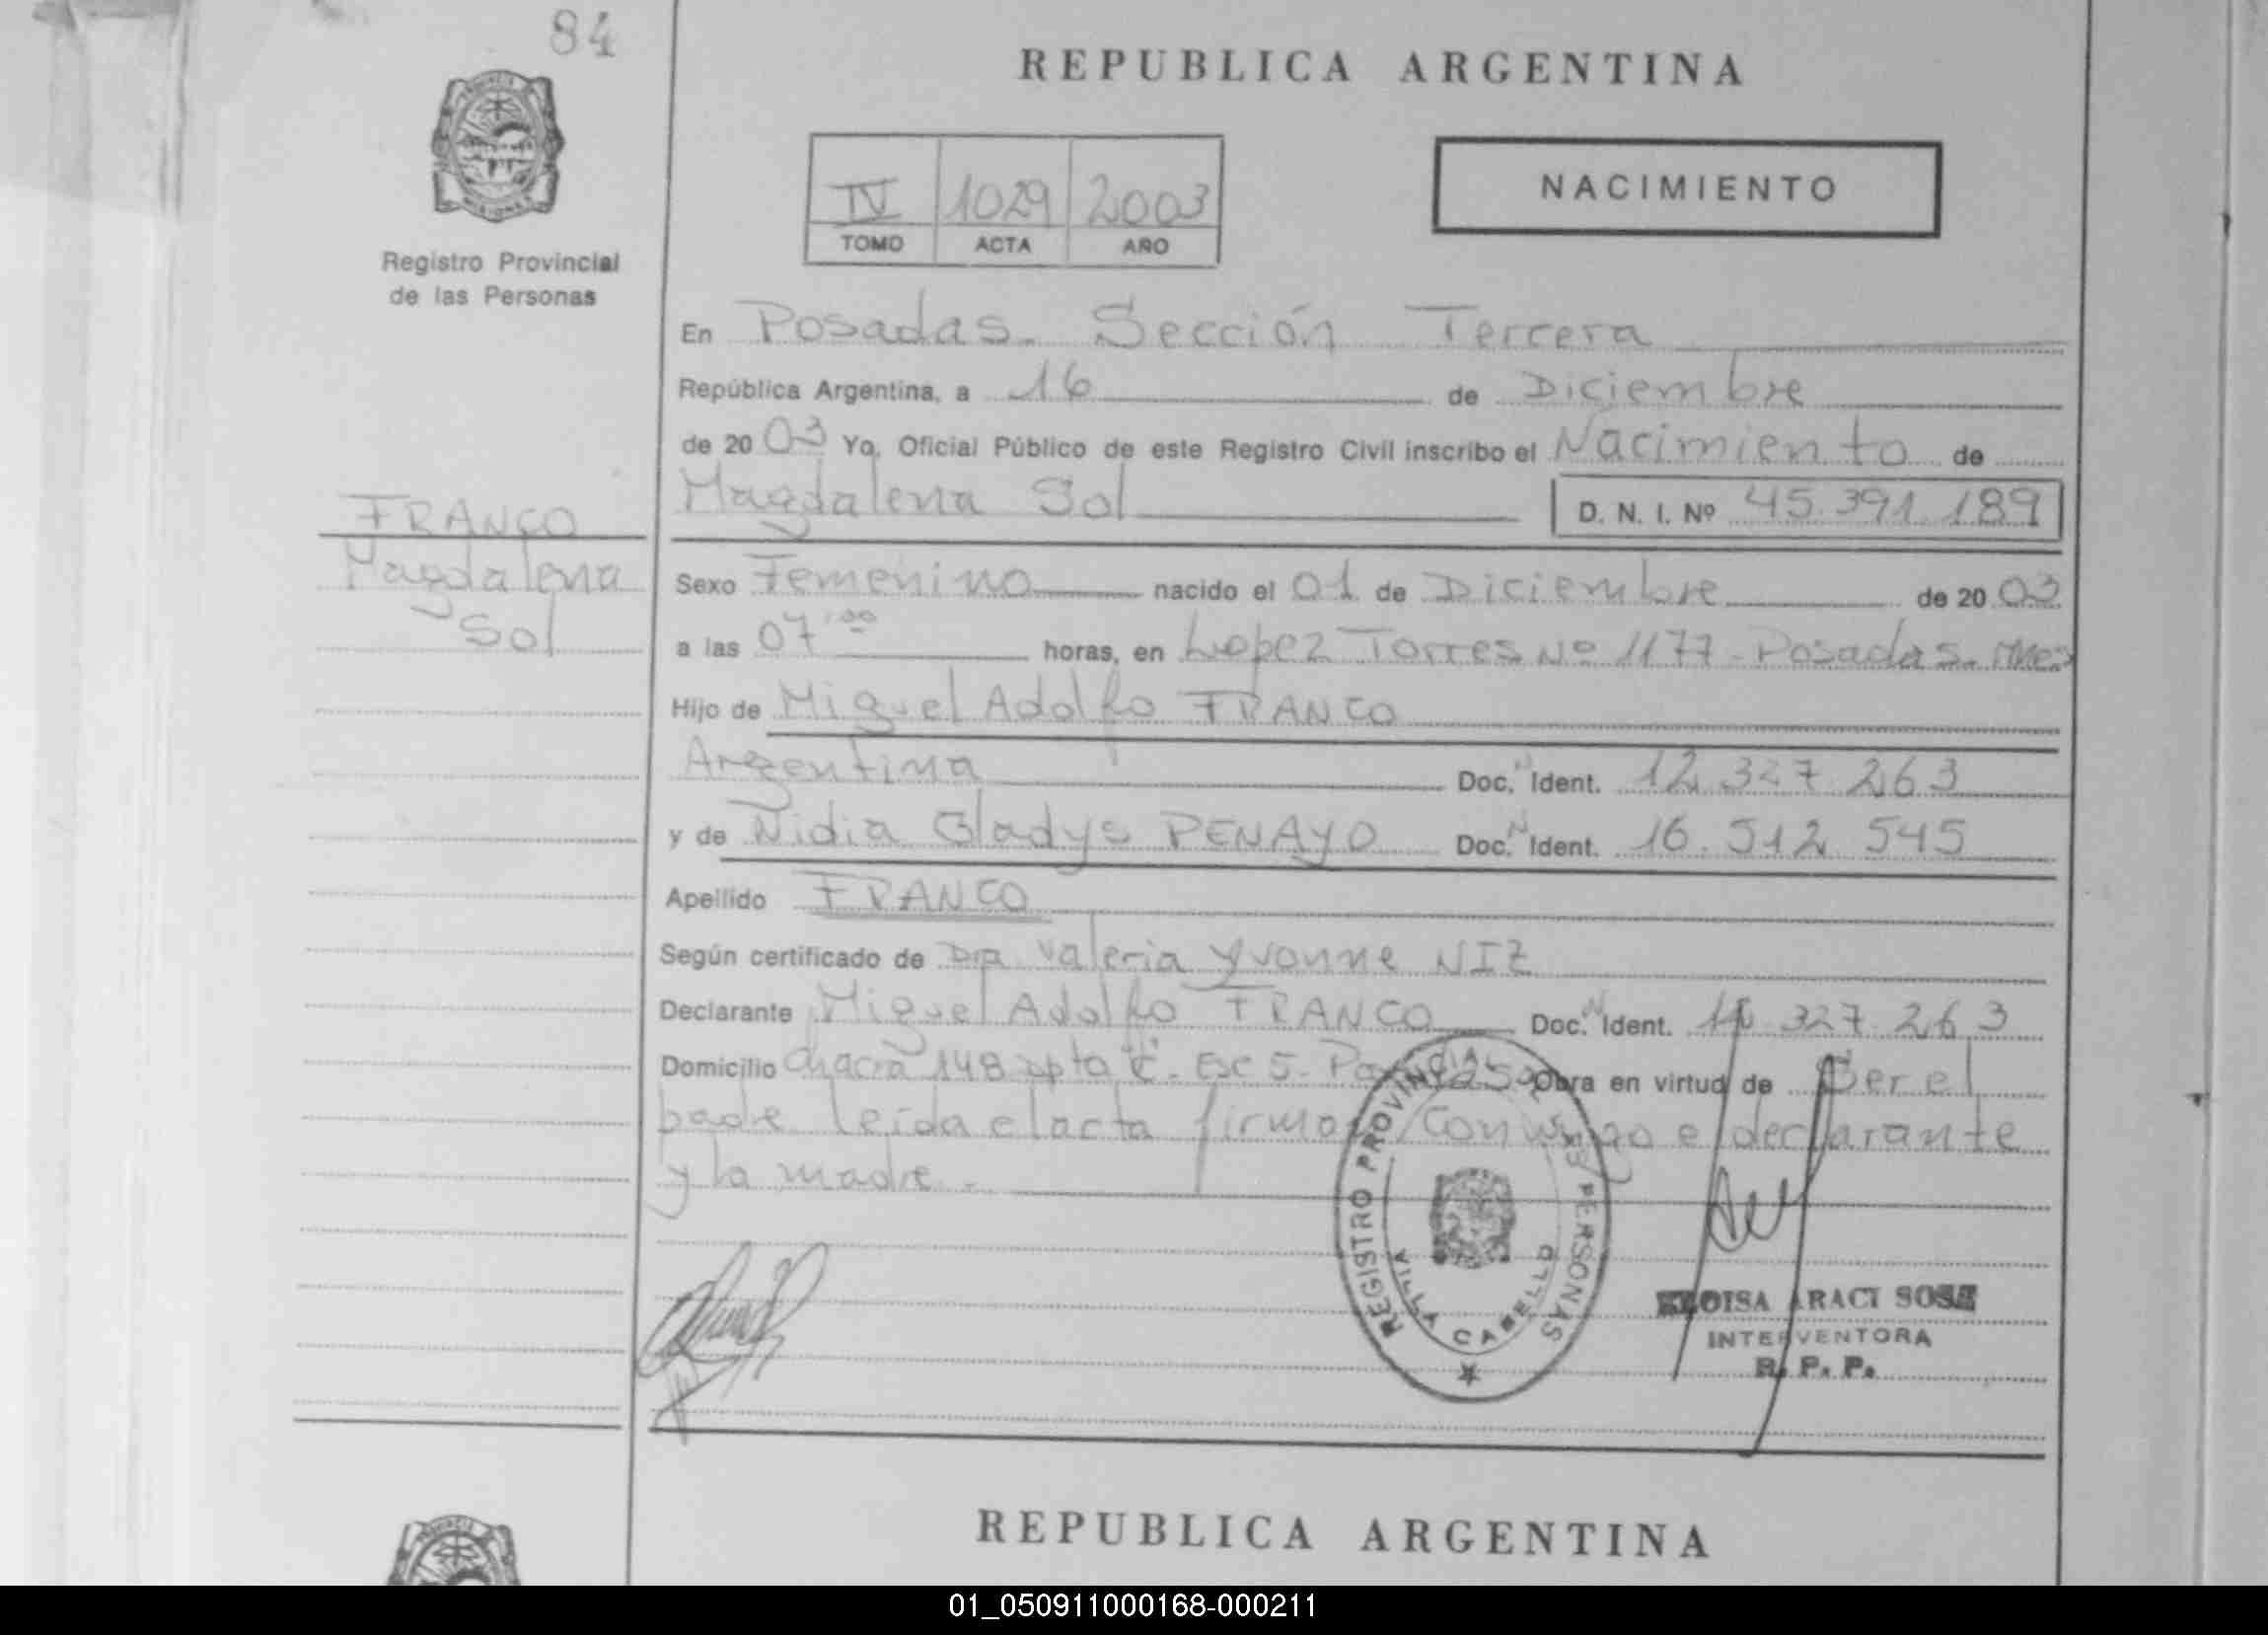 84
REPUBLICA ARGENTINA
NACIMIENTO
IV 1029 2003
TOMO ACTA AÑO
Registro Provincial
de las Personas
En Posadas. Sección Tercera
República Argentina, a 16 de Diciembre
de 20 03 Yo, Oficial Público de este Registro Civil inscribo el Nacimiento de
Magdalena Sol D. N. I. Nº 45.391.189
FRANCO
Magdalena
Sol
Sexo Femenino nacido el 01 de Diciembre de 20 03
a las 07,00 horas, en Lopez Torres Nº 1177 - Posadas. Mnes
Hijo de Miguel Adolfo FRANCO
Argentina Doc. N Ident. 12.327.263
y de Nidia Gladys PENAYO Doc. N Ident. 16.512.545
Apellido FRANCO
Según certificado de Dra Valeria Yvonne NIZ
Declarante Miguel Adolfo FRANCO Doc. N Ident. 327.263
Domicilio Chacra 148 dpto "C". Esc 5 - Posadas Obra en virtud de Ser el
padre leída el acta firman conmigo el declarante
y la madre.-
REGISTRO PROVINCIAL DE LAS PERSONAS
VILLA CABELLO
ELOISA ARACI SOSA
INTERVENTORA
R. P. P.
REPUBLICA ARGENTINA
01_050911000168-000211